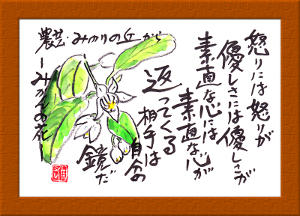 怒りには怒りが
優しさには優しさが
素直な心には
素直な心が
返ってくる
相手は
自分の
鏡だ
みかんの丘から
みかんの花